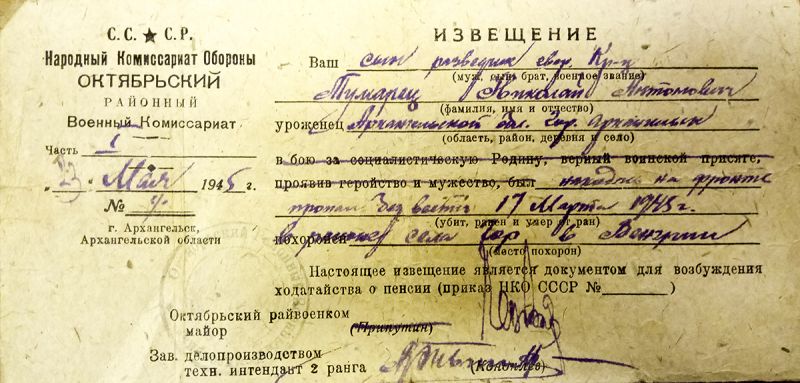 С. С. ★ С. Р.
Народный Комиссариат Обороны
ОКТЯБРЬСКИЙ
РАЙОННЫЙ
Военный Комиссариат
Часть I
"23" Мая 1945 г.
№
г. Архангельск,
Архангельской области
ИЗВЕЩЕНИЕ
Ваш сын разведчик Кр-ц
(муж, сын, брат, военое звание)
Тумарец Николай Антонович
(фамилия, имя и отчество)
уроженец Архангельской обл. гор. Архангельск
(область, район, деревня и село)
в бою за социалистическую Родину, верный воинской присяге,
проявив геройство и мужество, был находясь на фронте
пропал без вести 17 Марта 1945 г.
(убит, ранен и умер от ран)
похоронен в районе села в Венгрии
(место похорон)
Настоящее извещение является документом для возбуждения
ходатайства о пенсии (приказ НКО СССР № )
Октябрьский райвоенком
майор (Припутин)
Зав. делопроизводством
техн. интендант 2 ранга